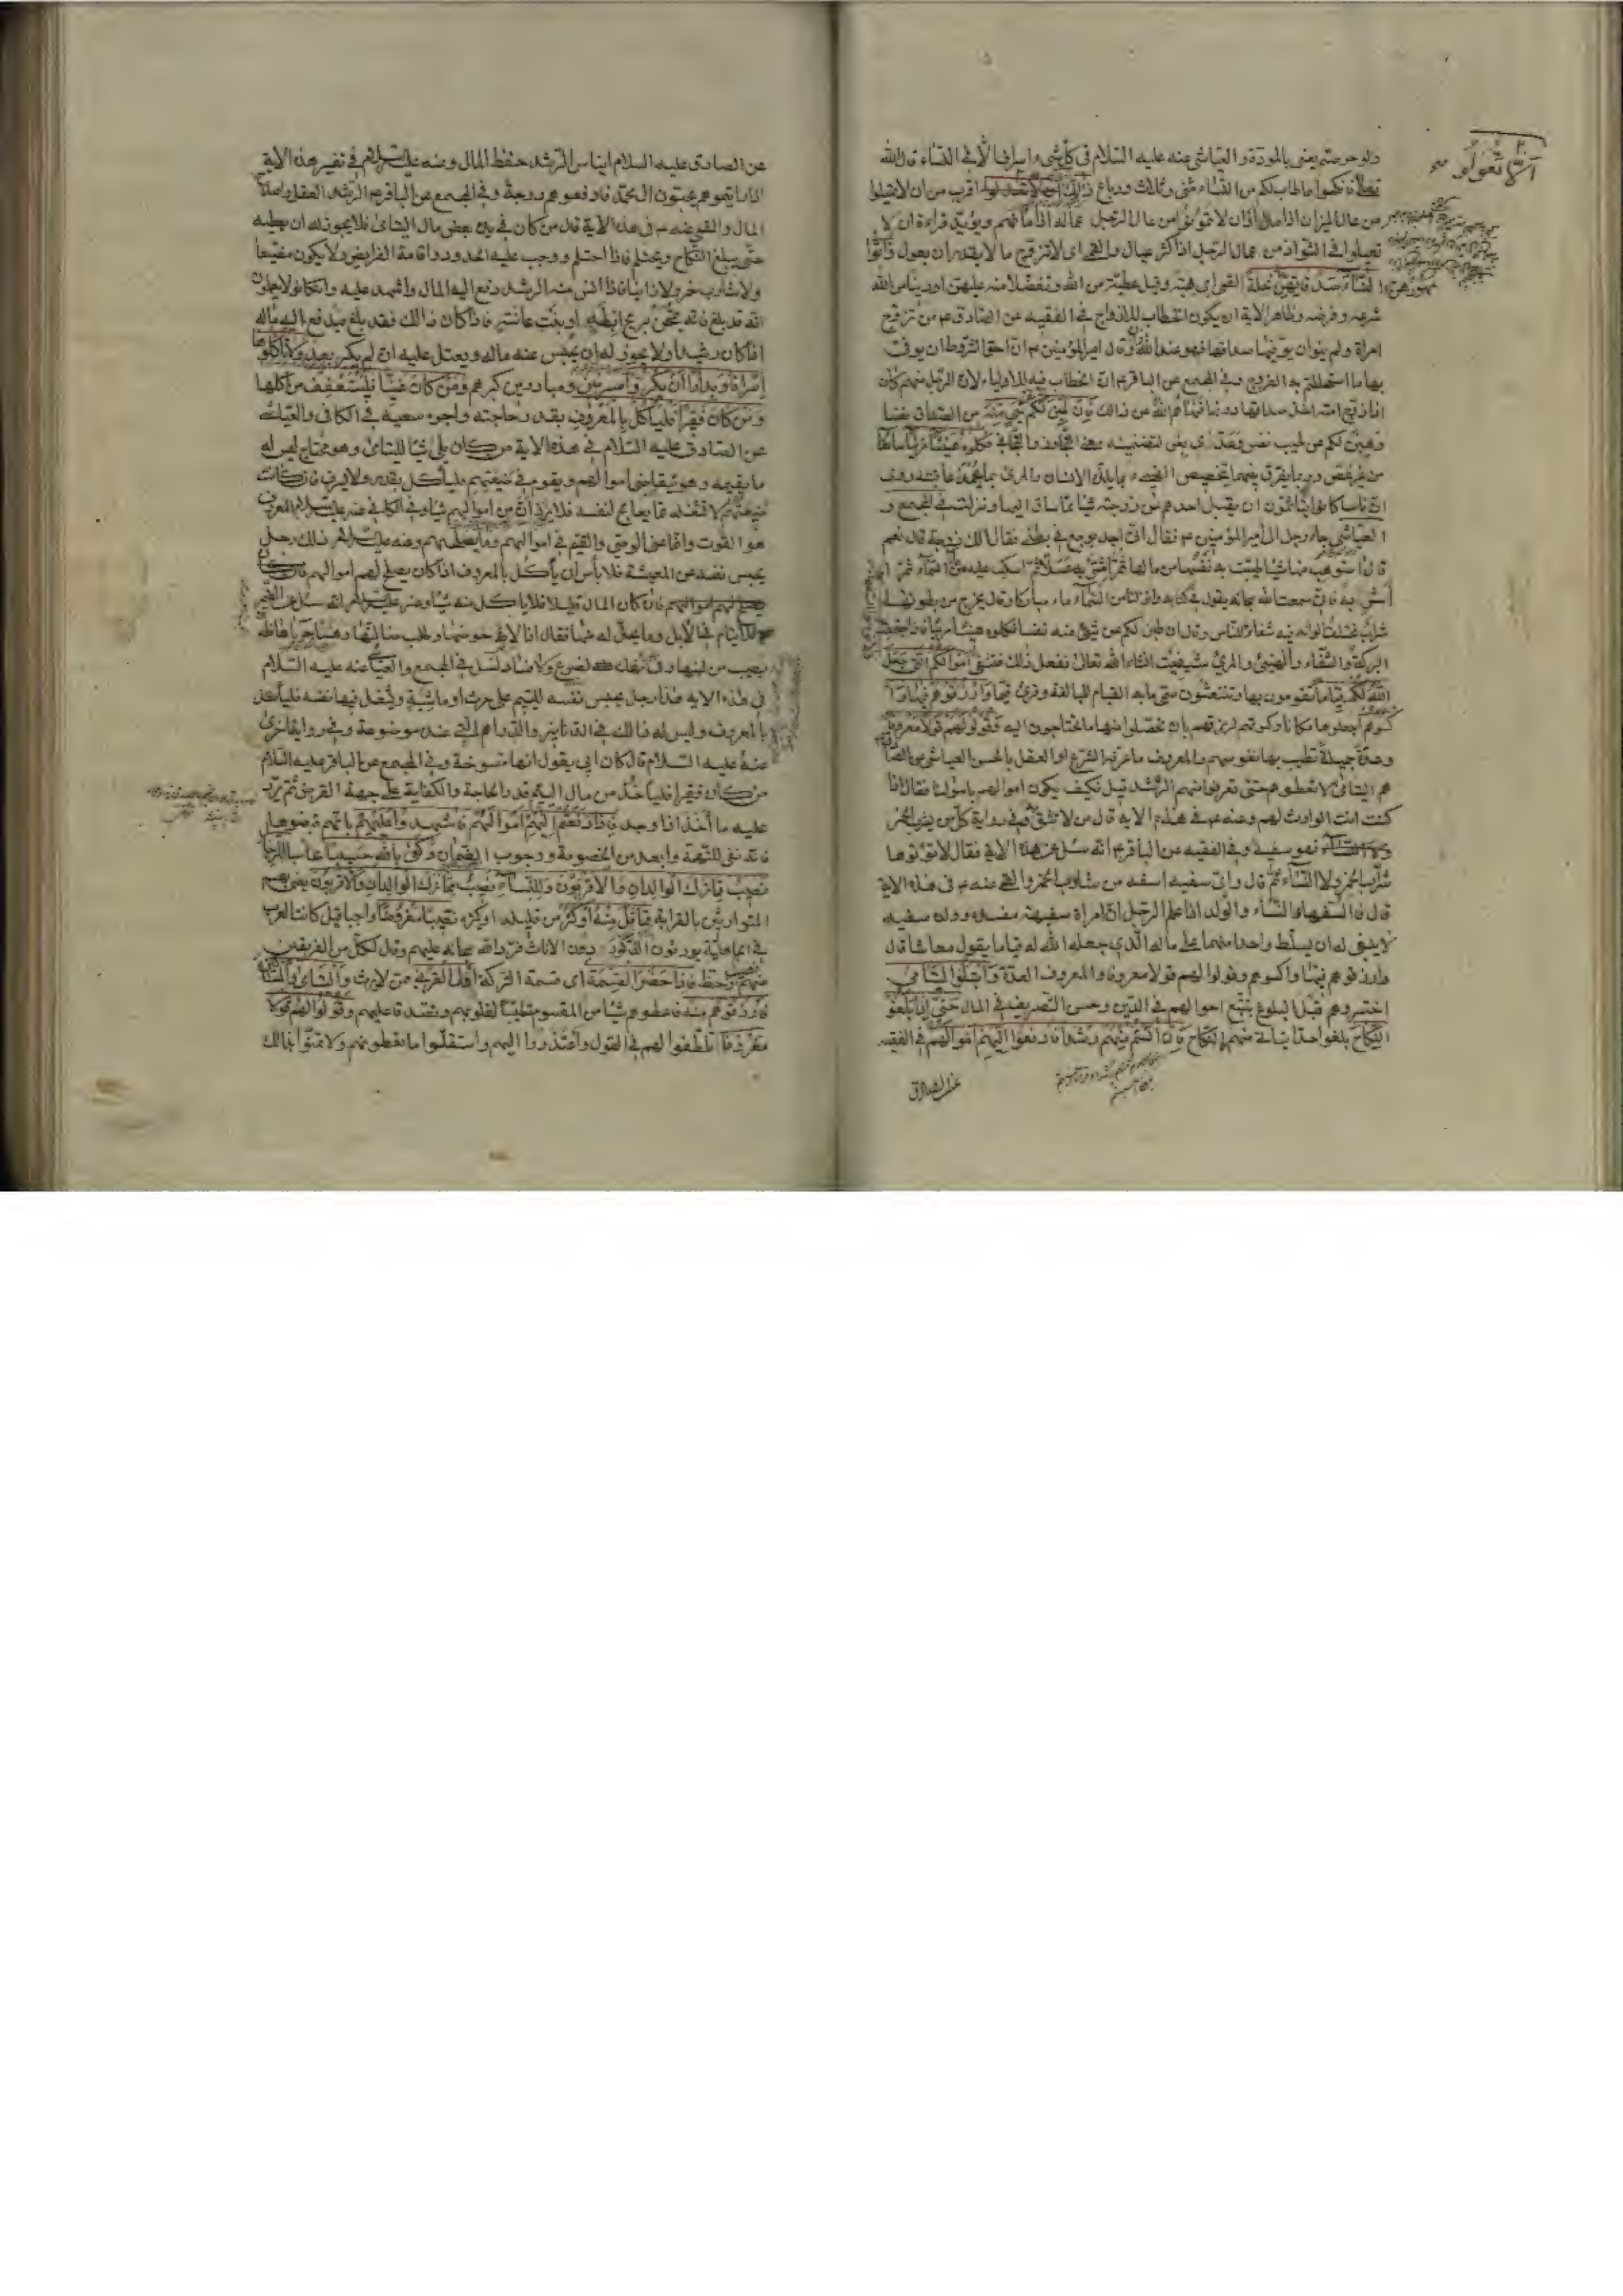 ولو حرصتم يعني بالمودة و العياشي عنه عليه السلام في كل شيء اسراف الا في النساء قال الله
تعالى فانكحوا ما طاب لكم من النساء مثنى وثلاث ورباع ذلك ادنى الا تعولوا اقرب من ان لا تميلوا
من عال الميزان اذا مال او ان لا تمونوا من عال الرجل عياله اذا مانهم ويؤيده قراءة ان لا
تعيلوا في الشواذ من عال الرجل اذا كثر عياله والقمي اي لا تتزوج ما لا يقدر ان يعول واتوا
النساء صدقاتهن نحلة القمي اي هبة وقيل عطية من الله وتفضلا منه عليهن او دينا من الله
شرعه وفرضه وظاهر الاية ان يكون الخطاب للازواج في الفقيه عن الصادق ع من تزوج
امراة ولم ينو ان يوفيها صداقها فهو عند الله زان وقال امير المؤمنين ع ان احق الشروط ان يوفى
بها ما استحللتم به الفروج وفي المجمع عن الباقر ع ان الخطاب فيه للاولياء لان الرجل منهم كان
اذا زوج امة اخذ صداقها دونها فنهاهم الله عن ذلك فان طبن لكم عن شيء منه من الصداق نفسا
وهبن لكم عن طيب نفس وعدى بعن لتضمنه معنى التجاوز والتجافي فكلوه هنيئا مريئا سائغا
من غير غصص وربما يفرق بينهما بتخصيص الهنيء بما يلذه الانسان والمريء بما يحمد عاقبته روي
ان ناسا كانوا يتأثمون ان يقبل احدهم من زوجته شيئا مما ساق اليها ونزلت في المجمع و
العياشي جاء رجل الى امير المؤمنين ع فقال اني اجد بوجع في بطني فقال الك زوجة قال نعم
قال استوهب منها شيئا طيبت به نفسها من مالها ثم اشتر به عسلا ثم اسكب عليه من ماء السماء ثم
اشربه فاني سمعت الله سبحانه يقول في كتابه وانزلنا من السماء ماء مباركا وقال يخرج من بطونها
شراب مختلف الوانه فيه شفاء للناس وقال فان طبن لكم عن شيء منه نفسا فكلوه هنيئا مريئا فاذا اجتمعت
البركة والشفاء والهنيء والمريء شفيت انشاء الله تعالى ففعل ذلك فشفي اموالكم التي جعل
الله لكم قياما تقومون بها وتنتعشون سمي ما به القيام للمبالغة وقرئ قيما وارزقوهم فيها و
اكسوهم اجعلوها مكانا لرزقهم وكسوتهم بان تحصلوا منها ما تحتاجون اليه وقولوا لهم قولا معروفا
وعدة جميلة تطيب بها نفوسهم والمعروف ما عرفه الشرع او العقل بالحسن العياشي عن الصادق
هم اليتامى لا تعطوهم حتى تعرفوا منهم الرشد قيل فكيف يكون اموالهم اموالنا فقال اذا
كنت انت الوارث لهم وعنه ع في هذه الاية قال من لا تثق به وفي رواية كل من يشرب الخمر
فهو سفيه وفي الفقيه عن الباقر ع انه سئل عن هذه الاية فقال لا تؤتوها
شراب الخمر ولا النساء ثم قال واي سفيه اسفه من شارب الخمر والقمي عنه ع في هذه الاية
قال فالسفهاء النساء والولد اذا علم الرجل ان امراته سفيهة مفسدة وولده سفيه
لا ينبغي له ان يسلط واحدا منهما على ماله الذي جعله الله له قياما يقول معاشا قال
وارزقوهم فيها واكسوهم وقولوا لهم قولا معروفا والمعروف العدة وابتلوا اليتامى
اختبروهم قبل البلوغ بتتبع احوالهم في الدين وحسن التصرف في المال حتى اذا بلغوا
النكاح بلغوا حدا يتأتى منهم النكاح فان انستم منهم رشدا فادفعوا اليهم اموالهم في الفقيه
عن الصادق
عن الصادق عليه السلام ايناس الرشد حفظ المال وعنه عليه السلام في تفسير هذه الاية
اذا رايتموهم يحبون ال محمد فارفعوهم درجة وفي المجمع عن الباقر ع الرشد العقل واصلاح
المال والقمي عنه ع في هذه الاية قال من كان في يده بعض مال اليتامى فلا يجوز له ان يعطيه
حتى يبلغ النكاح ويحتلم فاذا احتلم ووجب عليه الحدود واقامة الفرايض ولا يكون مضيعا
ولا شارب خمر ولا زانيا فاذا انس منه الرشد دفع اليه المال واشهد عليه وان كانوا لا يعلمون
انه قد بلغ فانه يمتحن بريح ابطه او نبت عانته فاذا كان ذالك فقد بلغ فيدفع اليه ماله
اذا كان رشيدا ولا يجوز له ان يحبس عنه ماله ويعتل عليه انه لم يكبر بعد ولا تأكلوها
اسرافا وبدارا ان يكبروا مسرفين ومبادرين كبرهم ومن كان غنيا فليستعفف من اكلها
ومن كان فقيرا فلياكل بالمعروف بقدر حاجته واجرة سعيه في الكافي والعياشي
عن الصادق عليه السلام في هذه الاية من كان يلي شيئا لليتامى وهو محتاج ليس له
ما يقيمه وهو يتقاضى اموالهم ويقوم في ضيعتهم فليأكل بقدر ولا يسرف فان كانت
ضيعتهم لا تشغله عما يعالج لنفسه فلا يرزأن من اموالهم شيئا وفي الكافي عنه عليه السلام المعروف
هو القوت وانما عنى الوصي والقيم في اموالهم وما يصلحهم وعنه عليه السلام ذلك رجل
يحبس نفسه عن المعيشة فلا بأس ان يأكل بالمعروف اذا كان يصلح لهم اموالهم
فان كان المال قليلا فلا ياكل منه شيئا
في هذه الاية هذا رجل يحبس نفسه لليتيم على حرث او ماشية ويشغل فيها نفسه فليأكل
بالمعروف وليس له ذالك في الدنانير والدراهم التي عنده موضوعة وفي رواية اخرى
عنه عليه السلام قال كان ابي يقول انها منسوخة وفي المجمع عن الباقر عليه السلام
من كان فقيرا فليأخذ من مال اليتيم قدر الحاجة والكفاية على جهة القرض ثم يرد
عليه ما اخذ اذا وجد فاذا دفعتم اليهم اموالهم فاشهدوا عليهم بانهم قبضوها
فانه نفى للتهمة وابعد من الخصومة ووجوب الضمان وكفى بالله حسيبا محاسبا للرجال
نصيب مما ترك الوالدان والاقربون وللنساء نصيب مما ترك الوالدان والاقربون يعني بهم
المتوارثين بالقرابة مما قل منه او كثر من قليله او كثيره نصيبا مفروضا واجبا قيل كانت العرب
في الجاهلية يورثون الذكور دون الاناث فرد الله سبحانه عليهم وقال لكل من الفريقين
منهم حظ واذا حضر القسمة اي قسمة التركة اولوا القربى ممن لا يرث واليتامى والمساكين
فارزقوهم منه فاعطوهم شيئا من المقسوم تطييبا لقلوبهم وتصدقا عليهم وقولوا لهم قولا
معروفا تلطفوا لهم في القول واعتذروا اليهم واستقلوا ما تعطونهم ولا تمنوا بذالك